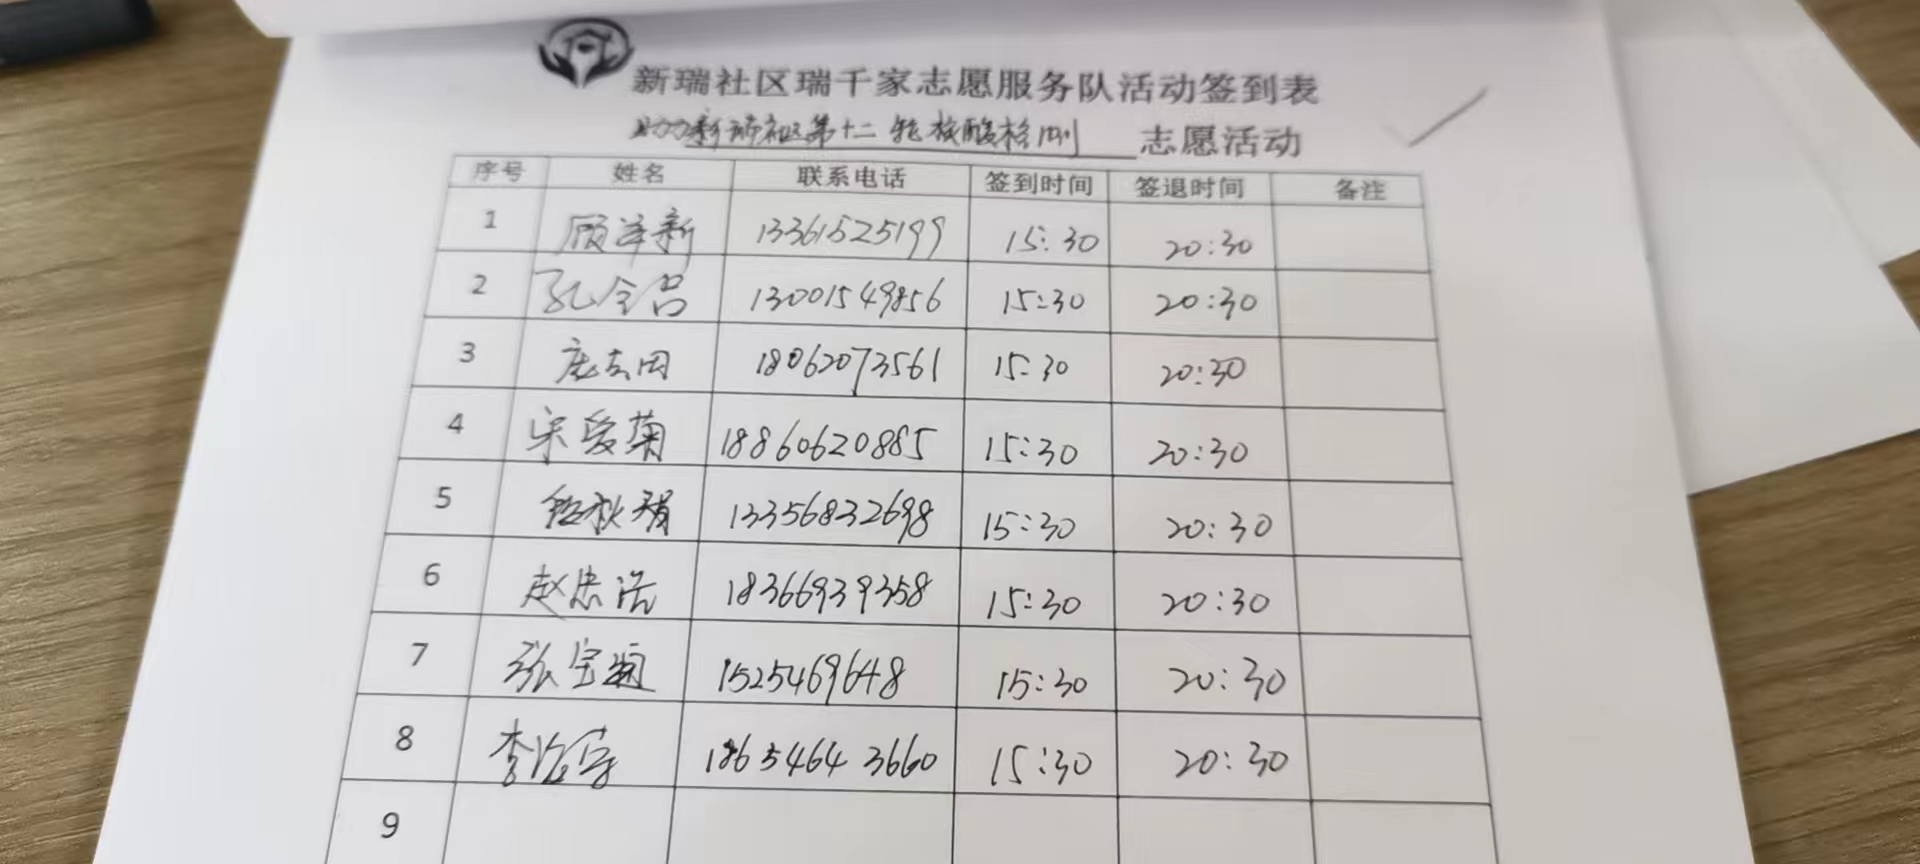 新瑞社区瑞千家志愿服务队活动签到表
助力新瑞社区第十二轮核酸检测 志愿活动
序号 姓名 联系电话 签到时间 签退时间 备注
1 顾泽新 13361525199 15:30 20:30
2 孔令吕 13001549856 15:30 20:30
3 18062073561 15:30 20:30
4 宋爱菊 18860620885 15:30 20:30
5 13356832698 15:30 20:30
6 赵忠浩 18366939358 15:30 20:30
7 张宝 1525469648 15:30 20:30
8 李治宇 18654643660 15:30 20:30
9